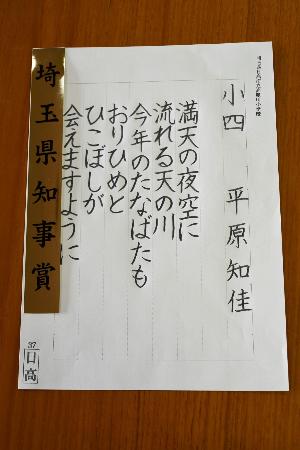 小四 平原知佳
満天の夜空に
流れる天の川
今年のたなばたも
おりひめと
ひこぼしが
会えますように
埼玉県知事賞
37
日高